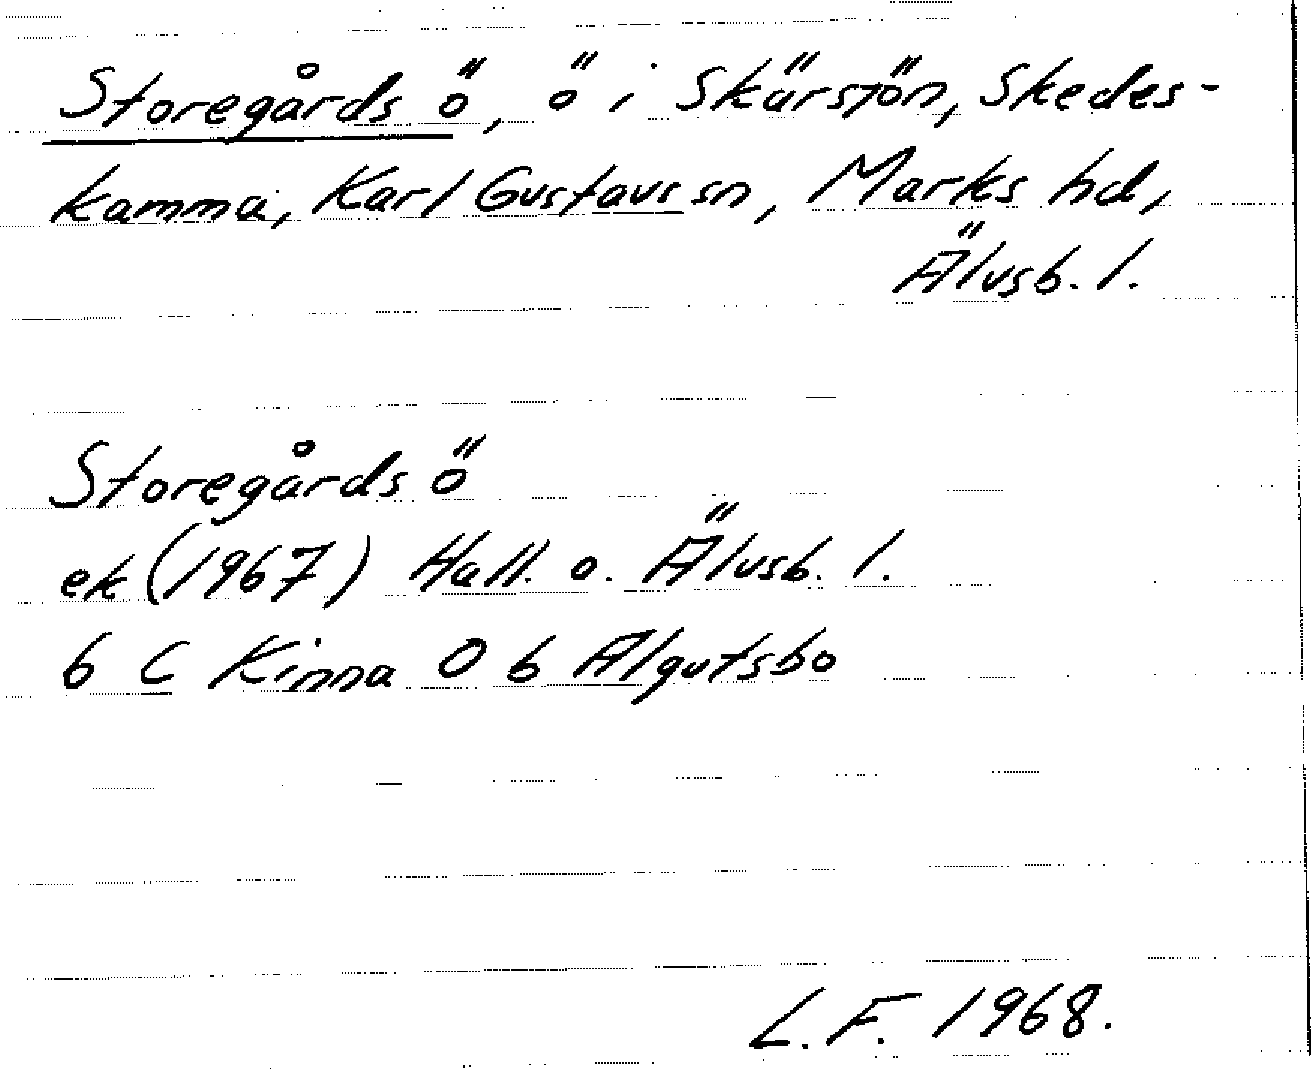 Storegårds ö, ö i Skärsjön, Skedes-
kamma, Karl Gustavs sn, Marks hd,
Älvsb. l.
Storegårds ö
ek (1967) Hall. o. Älvsb. l.
6 C Kinna 0 6 Algutsbo
L. F. 1968.